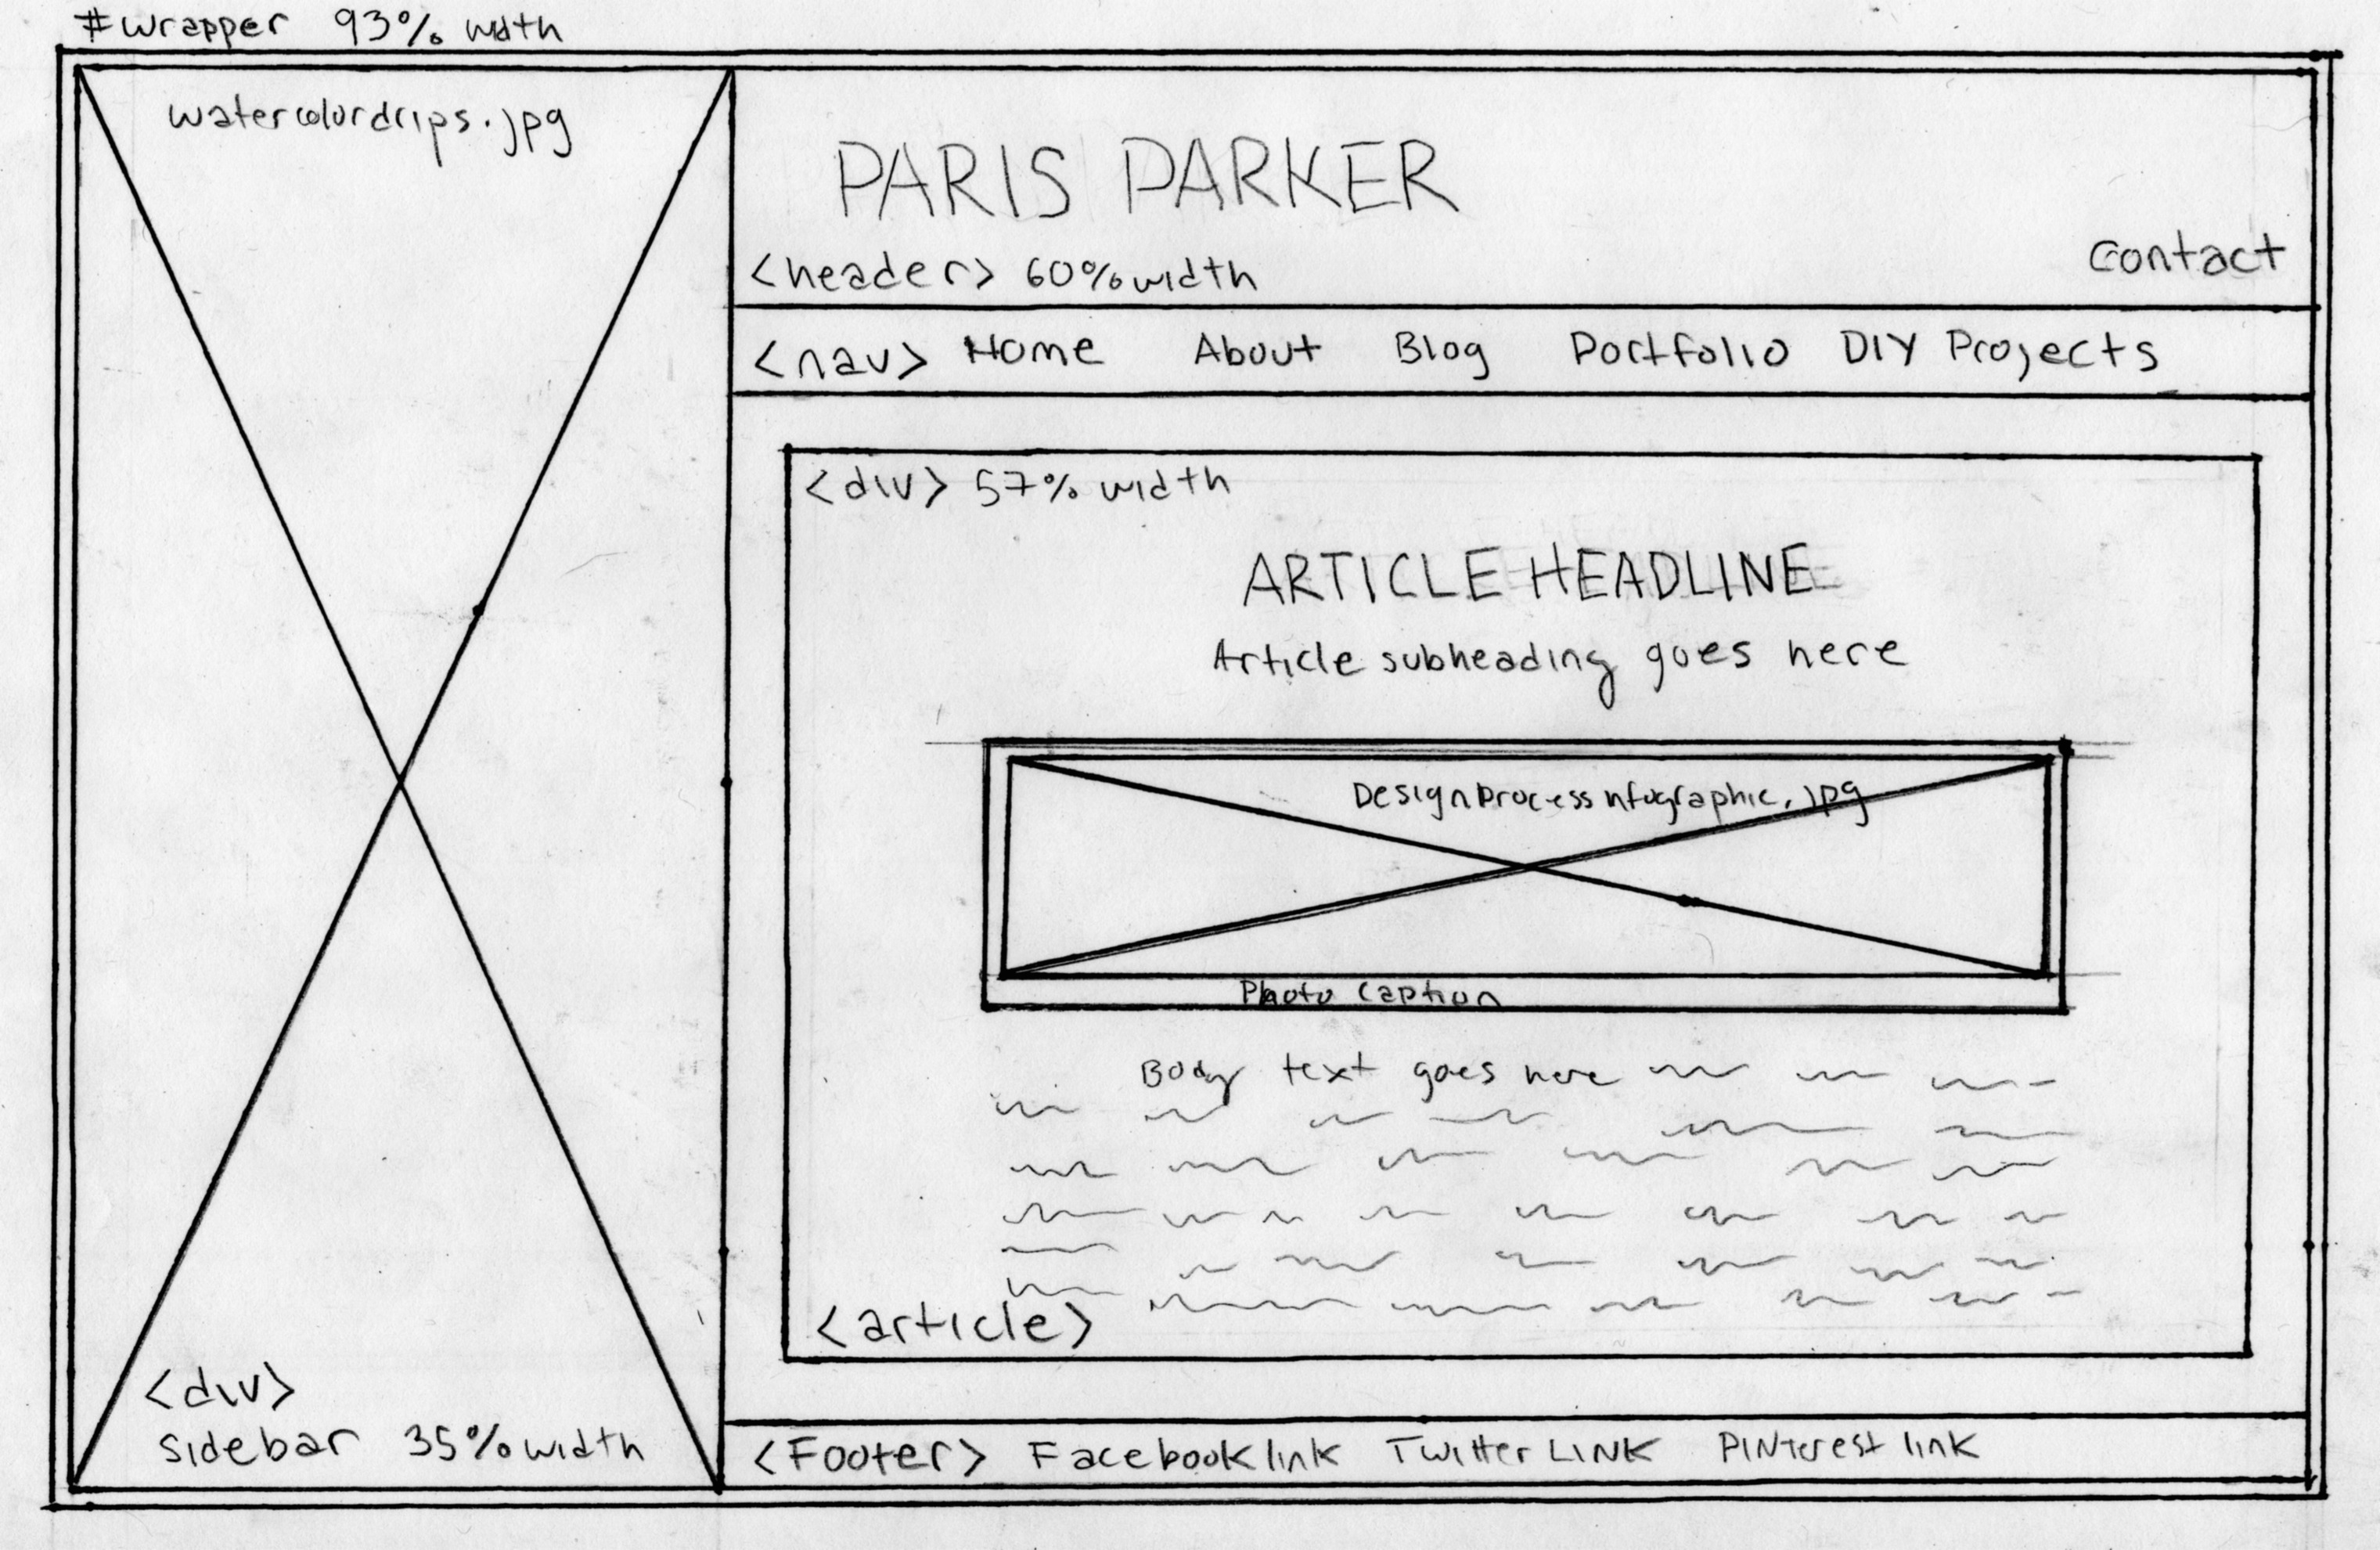 #wrapper 93% width
watercolordrips.jpg
PARIS PARKER
Contact
<header> 60% width
<nav> Home About Blog Portfolio DIY Projects
<div> 57% width
ARTICLE HEADLINE
Article subheading goes here
Designprocessinfographic.jpg
Photo Caption
Body text goes here
<article>
<div>
sidebar 35% width
<Footer> Facebook link Twitter LINK PINterest link